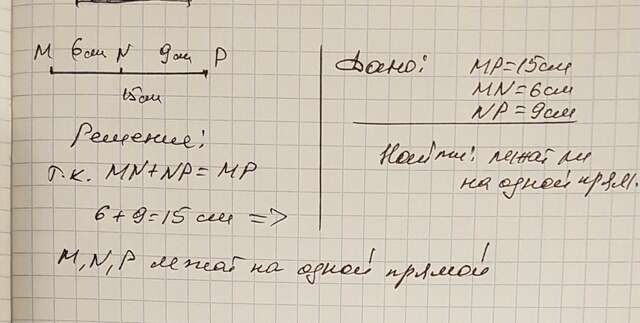 M 6см N 9см P
15см
Решение:
т.к. MN+NP=MP
6+9=15 см =>
M,N,P лежат на одной прямой
Дано: MP=15см
MN=6см
NP=9см
Найти: лежат ли
на одной прям.